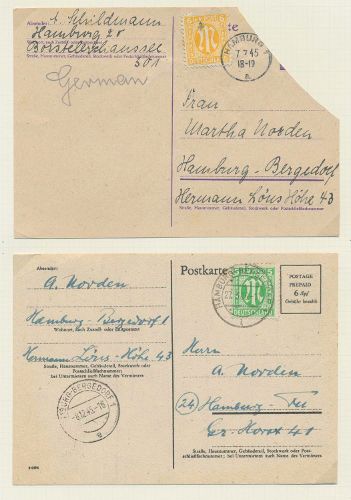 Absender: A. Schildmann
Hamburg 20
Borsteler Chaussee
301
German
HAMBURG 1
7.7.45
18-19
a
Frau
Martha Norden
Hamburg-Bergedorf
Hermann Löns Höhe 43
Straße, Hausnummer, Gebäudeteil, Stockwerk oder Postschließfachnummer
Absender:
A. Norden
Hamburg-Bergedorf 1
Wohnort, auch Zustell- oder Leitpostamt
Hermann Löns-Höhe 43
Straße, Hausnummer, Gebäudeteil, Stockwerk oder
Postschließfachnummer;
bei Untermietern auch Name des Vermieters
BERGEDORF 1
Postkarte
HAMBURG
5
DEUTSCHLAND
POSTAGE
PREPAID
6 Rpf
Gebühr bezahlt
Herrn
A. Norden
(24) Hamburg
Gr. Horst 40
Straße, Hausnummer, Gebäudeteil, Stockwerk oder Post-
schließfachnummer; bei Untermietern auch Name des Vermieters